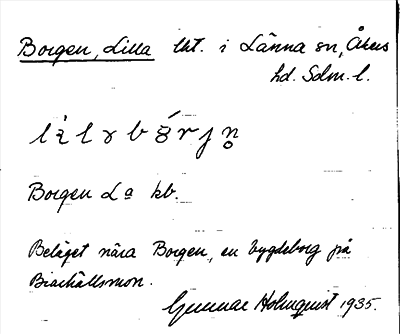 Borgen, Lilla lht. i Länna sn, Åkers
hd. Sdm. l.
Borgen La kb.
Beläget nära Borgen, en bygdeborg på
Gunnar Holmquist 1935.